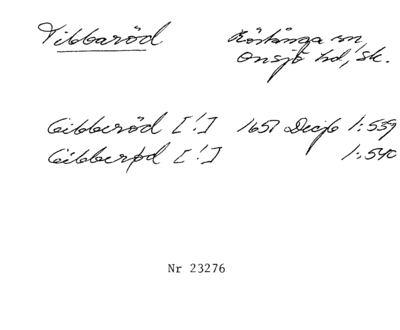 Vibbaröd Röstånga sn,
Onsjö hd, Sk.
Gibberöd [!] 1651 Decjb 1:539
Gibberød [!] 1:540
Nr 23276